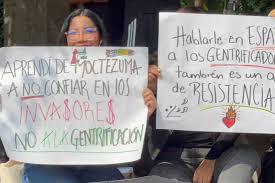 APRENDÍ DE MOCTEZUMA
A NO CONFIAR EN LOS
INVA$ORE$
NO A LA GENTRIFICACIÓN
Hablarle en ESPA
A los GENTRIFICADO
también es un a
de RESISTENCIA